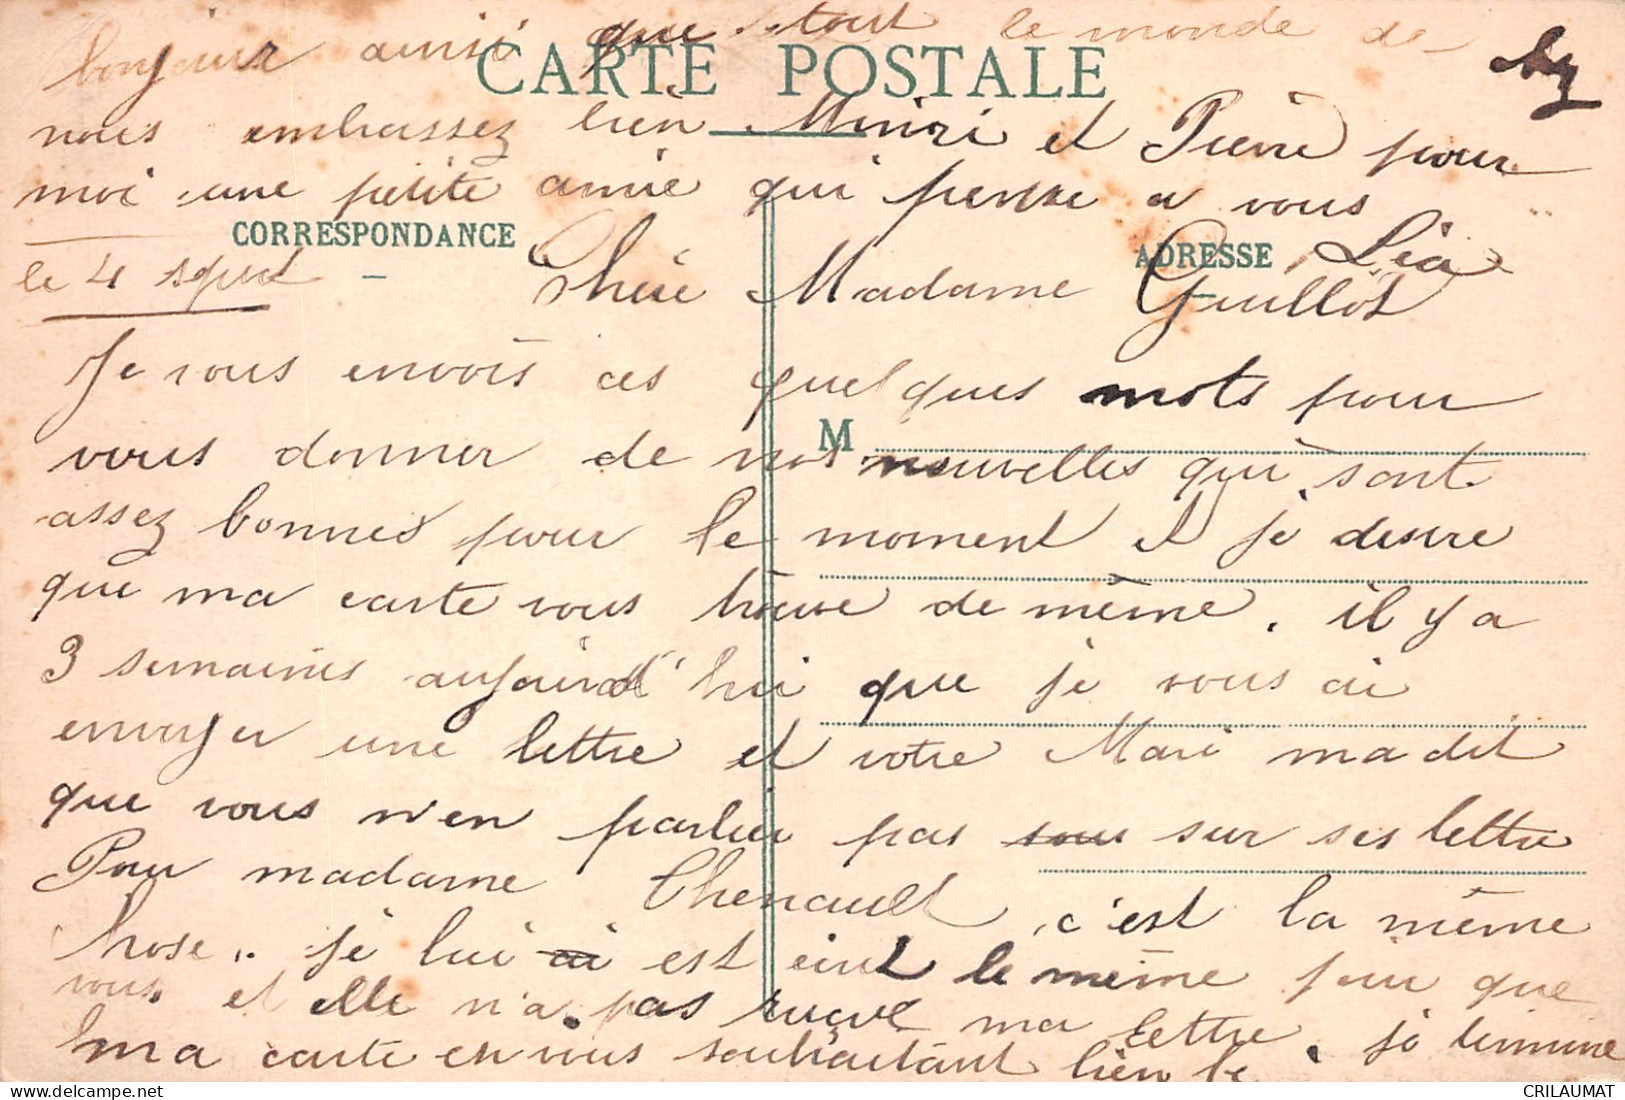 bonjour ainsi que tout le monde de
CARTE POSTALE
nous embrassez bien Mimi et Pierre pour
moi une petite amie qui pense a vous
CORRESPONDANCE
ADRESSE
Léa
le 4
Chère Madame Guillot
Je vous envois ces quelques mots pour
M
vous donner de nos nouvelles qui sont
assez bonnes pour le moment et je desire
que ma carte vous trouve de même. il y a
3 semaines aujourd'hui que je vous ai
envoyer une lettre et votre Mari ma dit
que vous n'en parlier pas sous sur ses lettre
Pour madame Chenault c'est la même
chose.. je lui ai est écrit le même jour que
vous. et elle n'a pas reçue ma lettre. je termine
ma carte en vous souhaitant bien le
CRILAUMAT